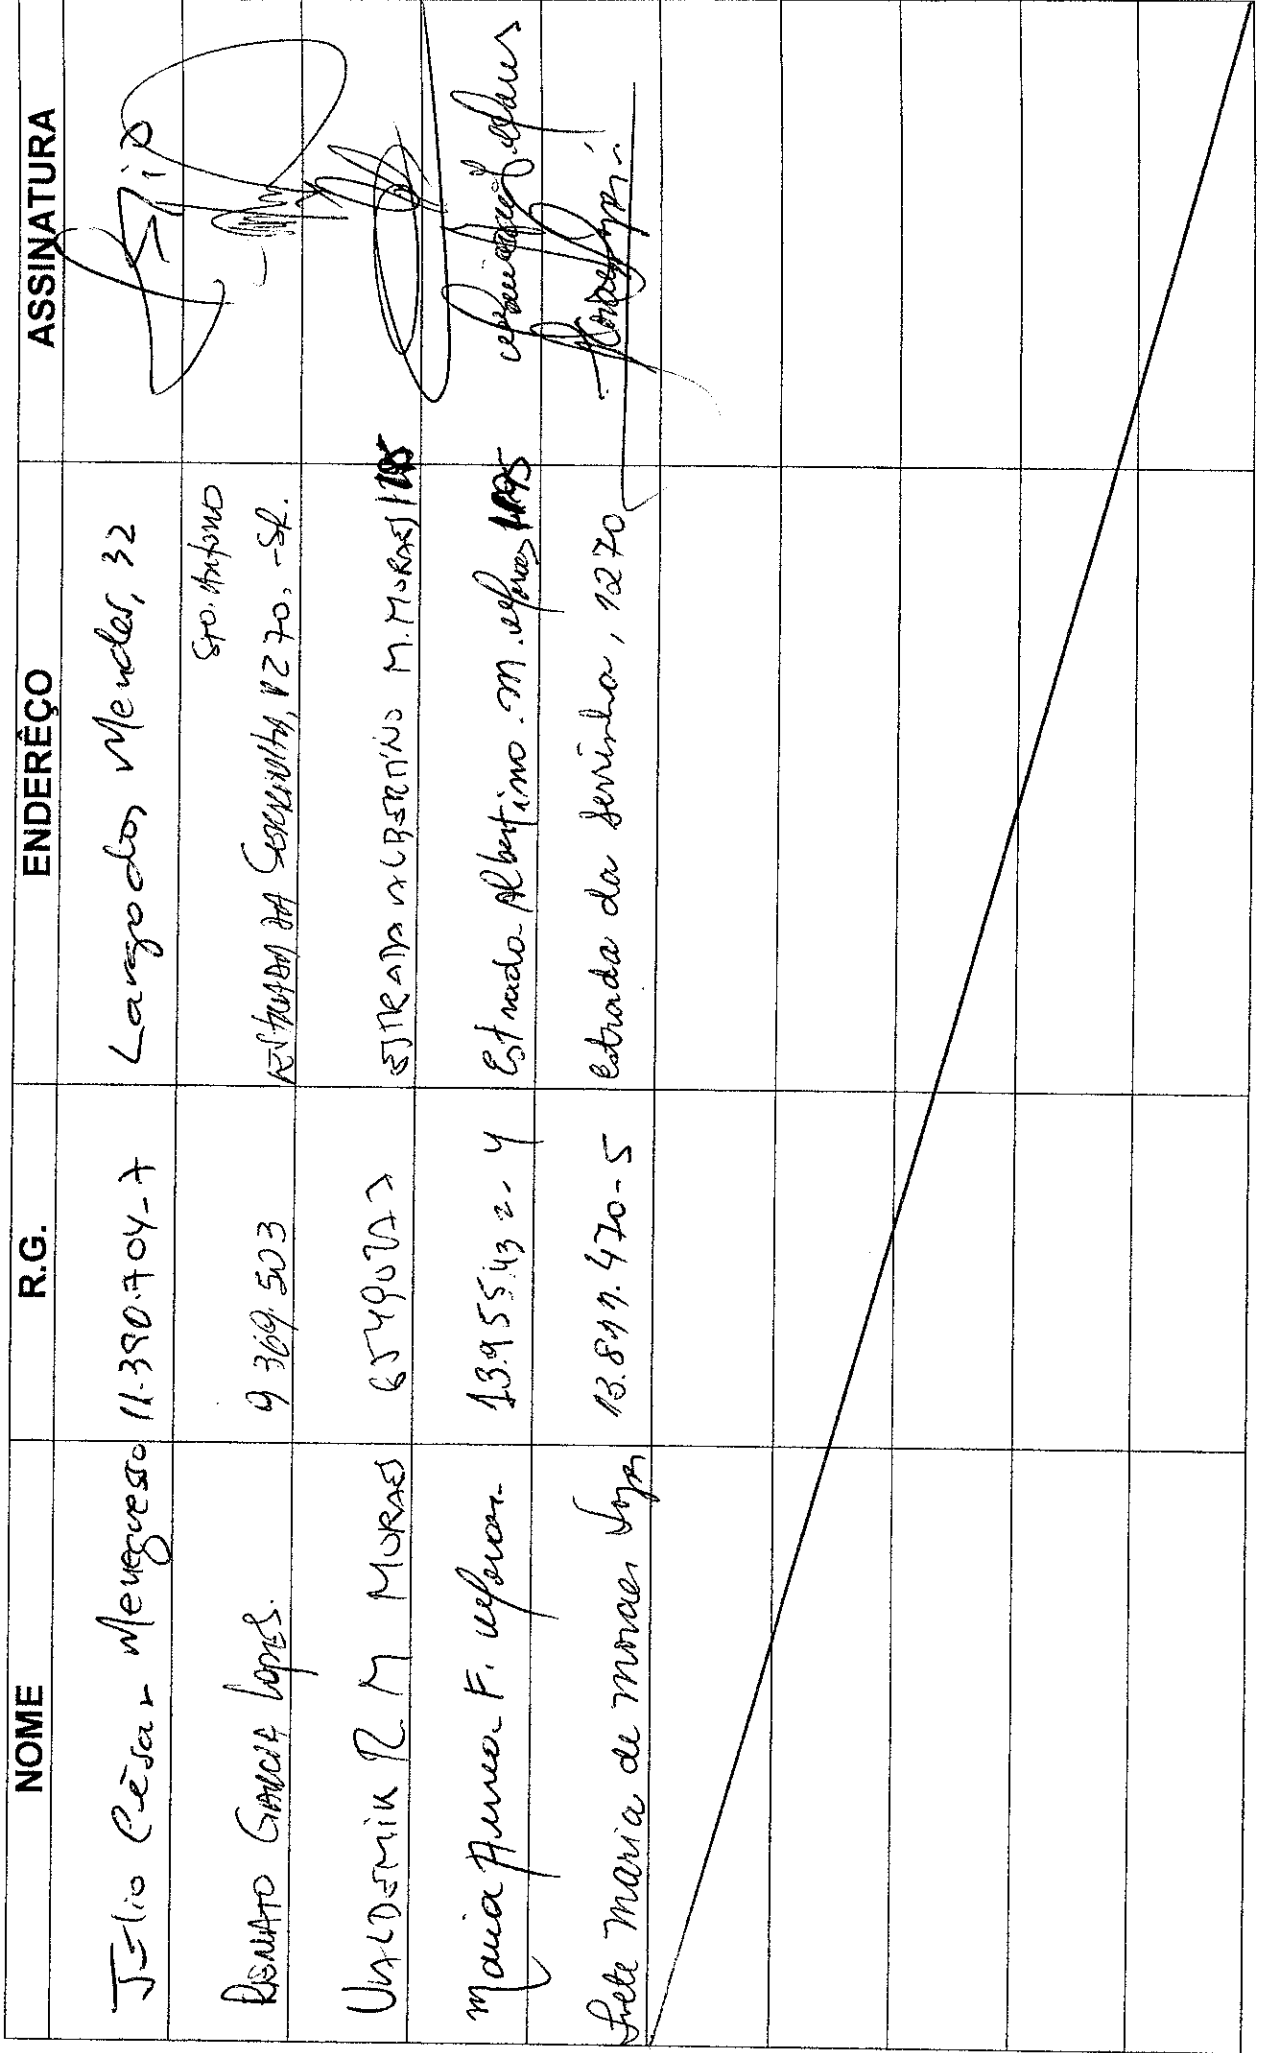 NOME R.G. ENDERÊÇO ASSINATURA
Júlio César Menegresso 11.390.704-7 Largo dos Mendes, 32
Sto. Antonio
RENATO GARCIA LOPES. 9.369.503 ESTRADA DA SERRINHA, 1270. -SR.
VALDEMIR R. M MORAES ESTRADA ALBERTINO M. MORAES
Maria F. Moraes 13.955.432-4 Estrada Albertino. M. Moraes
Ivete Maria de moraes Lopes 13.811.470-5 estrada da Serrinha, 1270